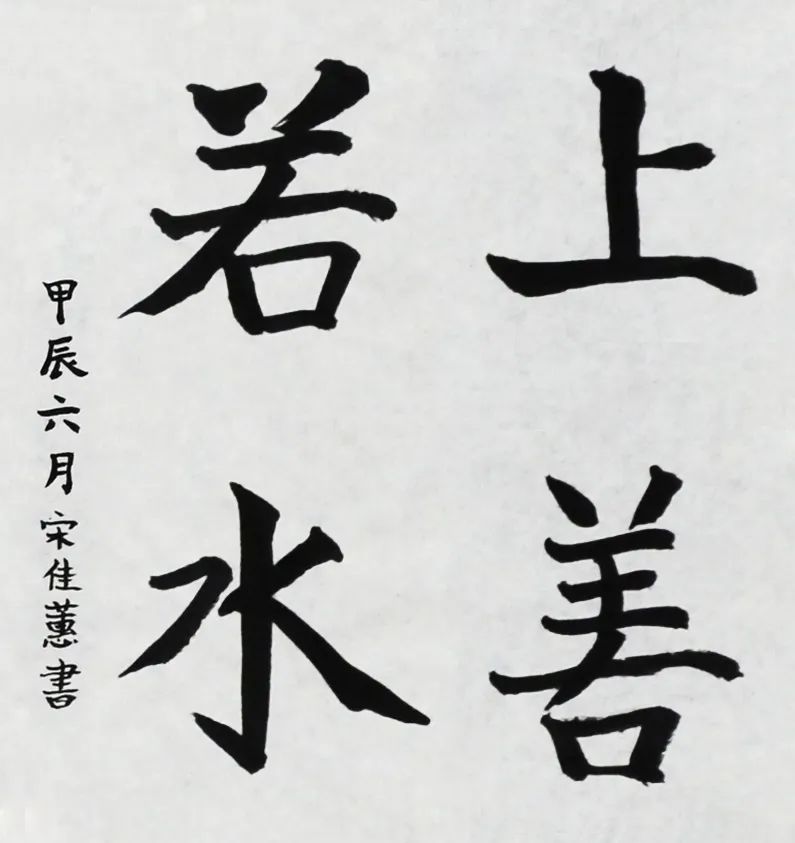 上善
若水
甲辰六月宋佳蕙書